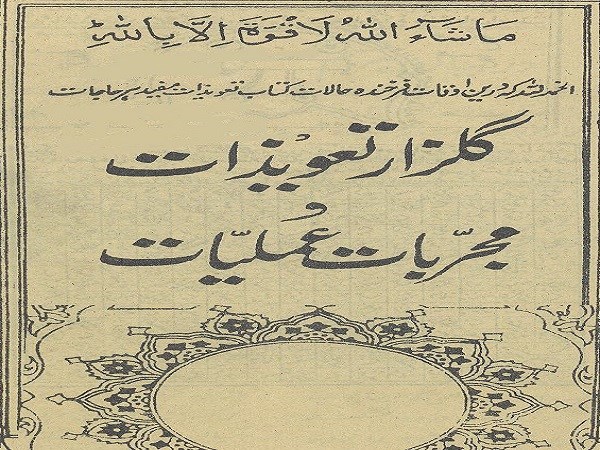 مَاشَآءَ اللهُ لَا قُوَّةَ اِلَّا بِاللهِ
الحمد للہ کہ درین اوقات فرخندہ حالات کتاب تعویذات مفید ہر حاجات
گلزار تعویذات
و
مجرّبات عملیّات